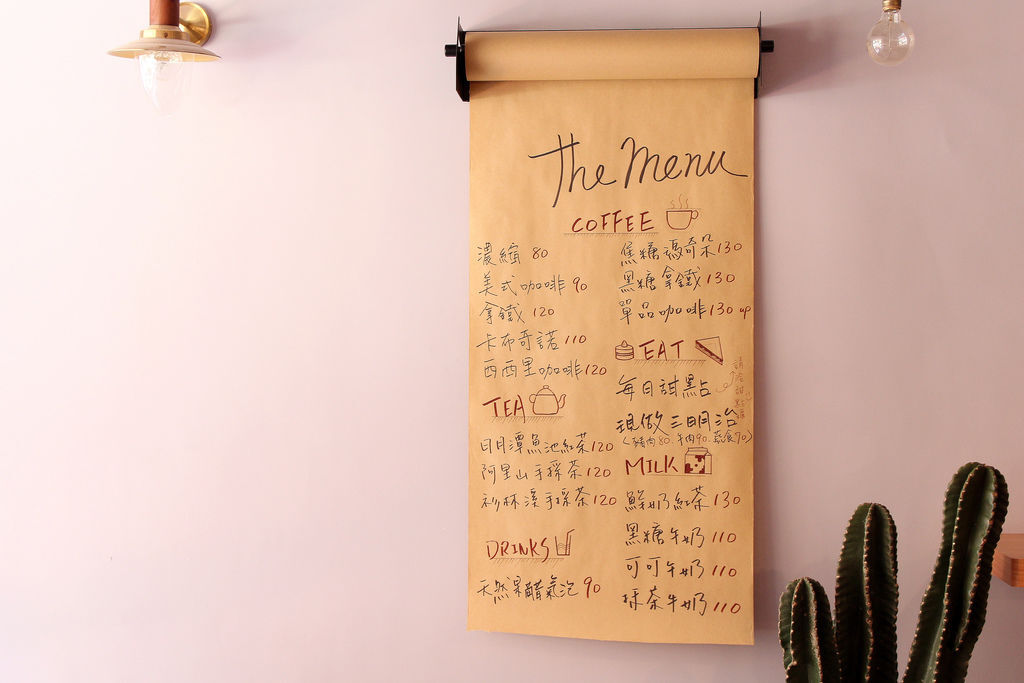 The Menu
COFFEE
濃縮 80
美式咖啡 90
拿鐵 120
卡布奇諾 110
西西里咖啡 120
焦糖瑪奇朵 130
黑糖拿鐵 130
單品咖啡 130 up
TEA
日月潭魚池紅茶 120
阿里山手採茶 120
杉林溪手採茶 120
DRINKS
天然果醋氣泡 90
EAT
每日甜點
請洽甜點櫃
現做三明治
(豬肉80.牛肉90.蔬食70)
MILK
鮮奶紅茶 130
黑糖牛奶 110
可可牛奶 110
抹茶牛奶 110